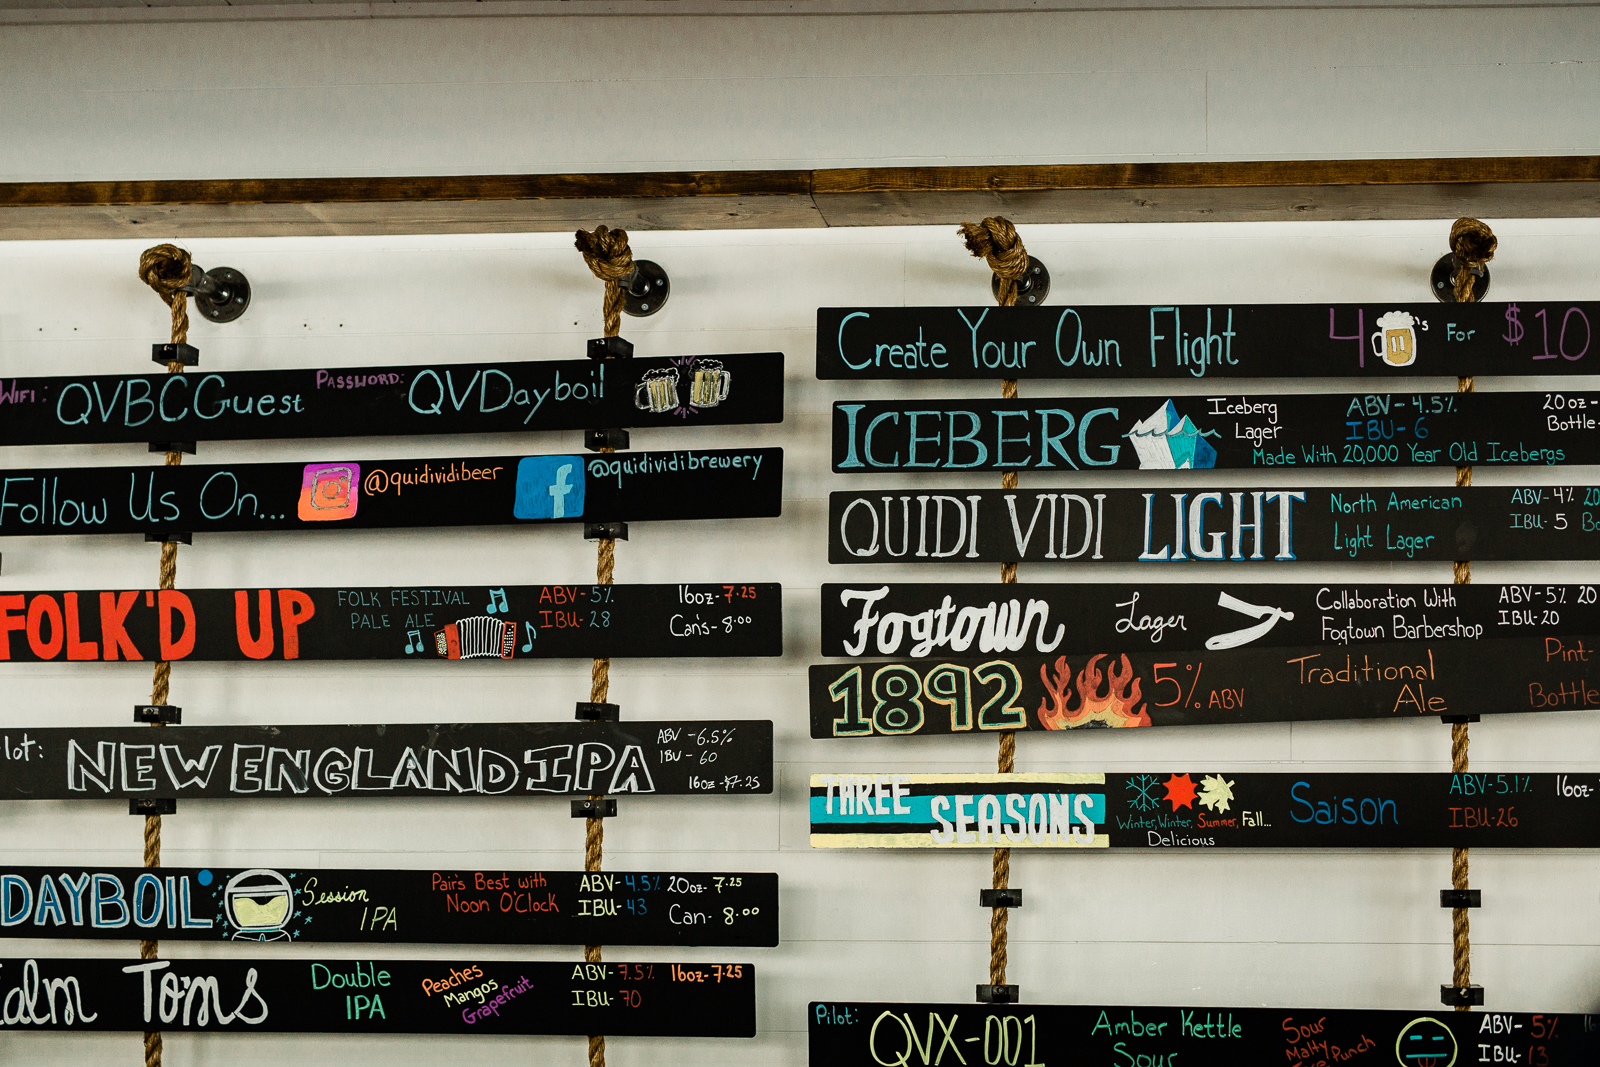 WIFI: QVBCGuest PASSWORD: QVDayboil
Follow Us On... @quidividibeer @quidividibrewery
FOLK'D UP
FOLK FESTIVAL
PALE ALE
ABV-5%
IBU-28
16oz-7.25
Can's-8.00
NEW ENGLAND IPA
ABV-6.5%
IBU-60
16oz-$7.25
DAYBOIL
Session
IPA
Pair's Best with
Noon O'Clock
ABV-4.5%
IBU-43
20oz-7.25
Can-8.00
Toms
Double
IPA
Peaches
Mangos
Grapefruit
ABV-7.5%
IBU-70
16oz-7.25
Create Your Own Flight 4 's For $10
ICEBERG
Iceberg
Lager
ABV-4.5%
IBU-6
Made With 20,000 Year Old Icebergs
20oz-
Bottle-
QUIDI VIDI LIGHT
North American
Light Lager
ABV-4% 20
IBU-5
Fogtown
Lager
Collaboration With
Fogtown Barbershop
ABV-5% 20
IBU-20
1892
5% ABV
Traditional
Ale
Pint-
Bottle
THREE
SEASONS
Winter, Winter, Summer, Fall...
Delicious
Saison
ABV-5.1%
IBU-26
16oz-
Pilot:
QVX-001
Amber Kettle
Sour
Sour
Malty Punch
ABV-5%
IBU-13